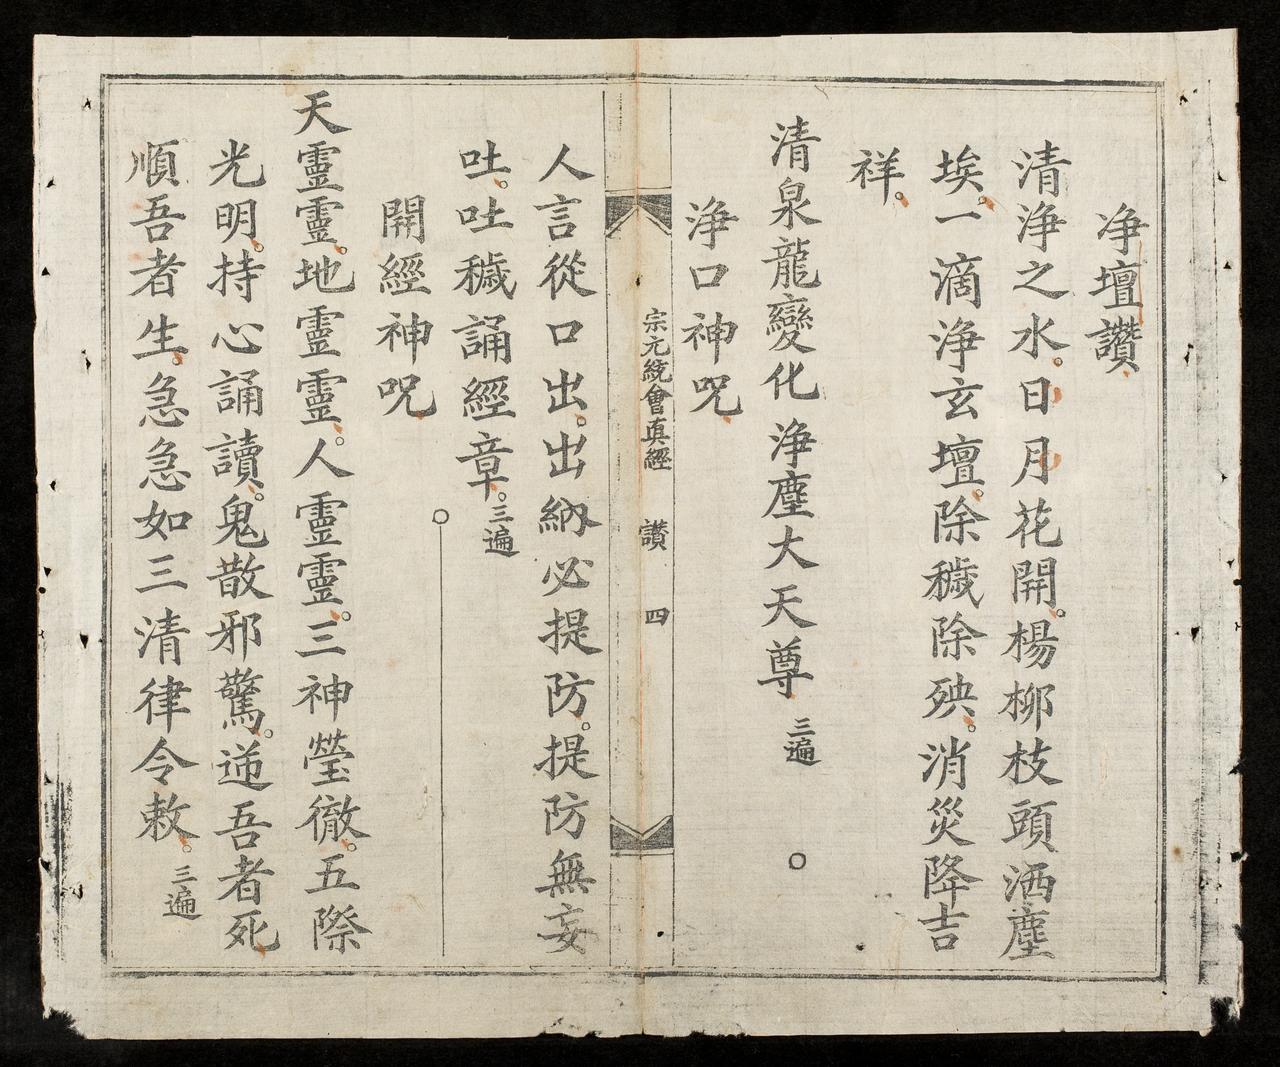 净壇讚
清净之水。日月花開。楊柳枝頭洒塵
埃。一滴净玄壇。除穢除殃。消災降吉
祥。
清泉龍變化净塵大天尊 三遍 ○
净口神咒
宗元統會真經 讚 四
人言從口出。出納必提防。提防無妄
吐。吐穢誦經章。三遍
開經神咒 ○
天靈靈。地靈靈。人靈靈。三神瑩徹。五際
光明。持心誦讀。鬼散邪驚。逆吾者死
順吾者生。急急如三清律令敕。三遍